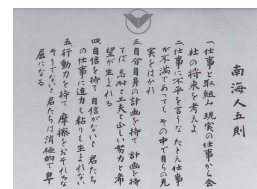 南海人五則
一、仕事と取組み 現実の仕事から会
社の将来を考えよ
二、仕事に不平を言うな たとえ仕事
が不満であっても、その中で自らの充
実をはかれ
三、自分自身の計画を持て 計画を持
てば 忍耐と工夫と正しい努力と希
望が生まれる
四、自信を持て 自信がないと 君たち
の仕事に迫力も粘りも生まれない
五、行動力を持て 摩擦をおそれるな
そうでないと 君たちは消極的で卑
屈になる